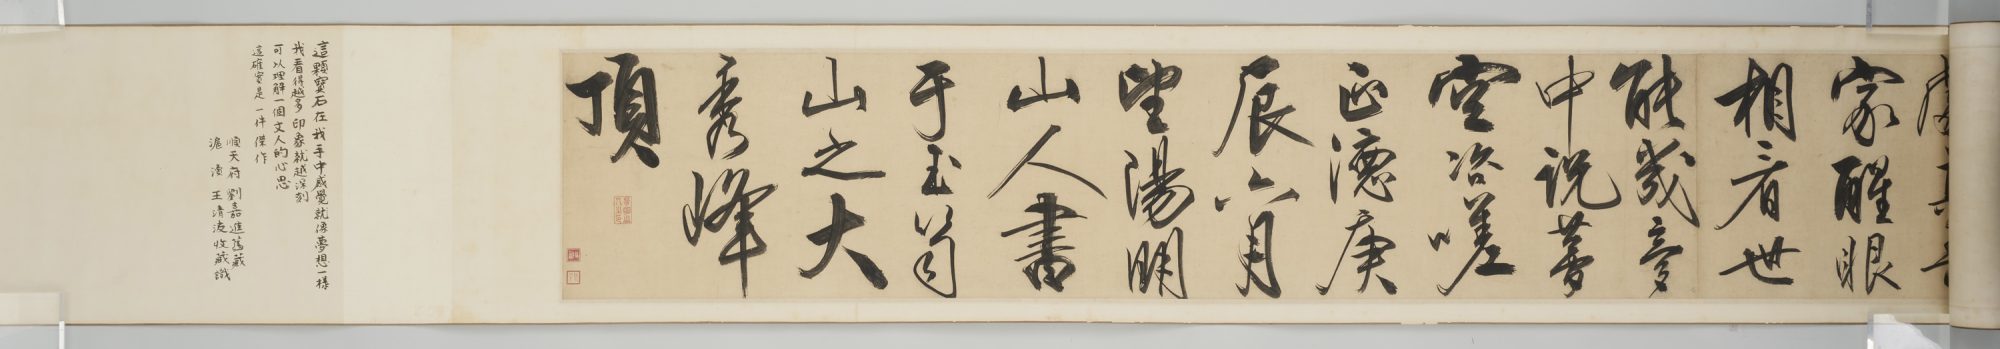 家醒眼
相看世
能幾夢
中說夢
空咨嗟
正德庚
辰六月
望陽明
山人書
于玉笥
山之大
秀峰
頂
這顆寶石在我手中感覺就像夢想一樣
我看得越多印象就越深刻
可以理解一個文人的心思
這確實是一件傑作
順天府劉嘉進舊藏
王清 收藏識